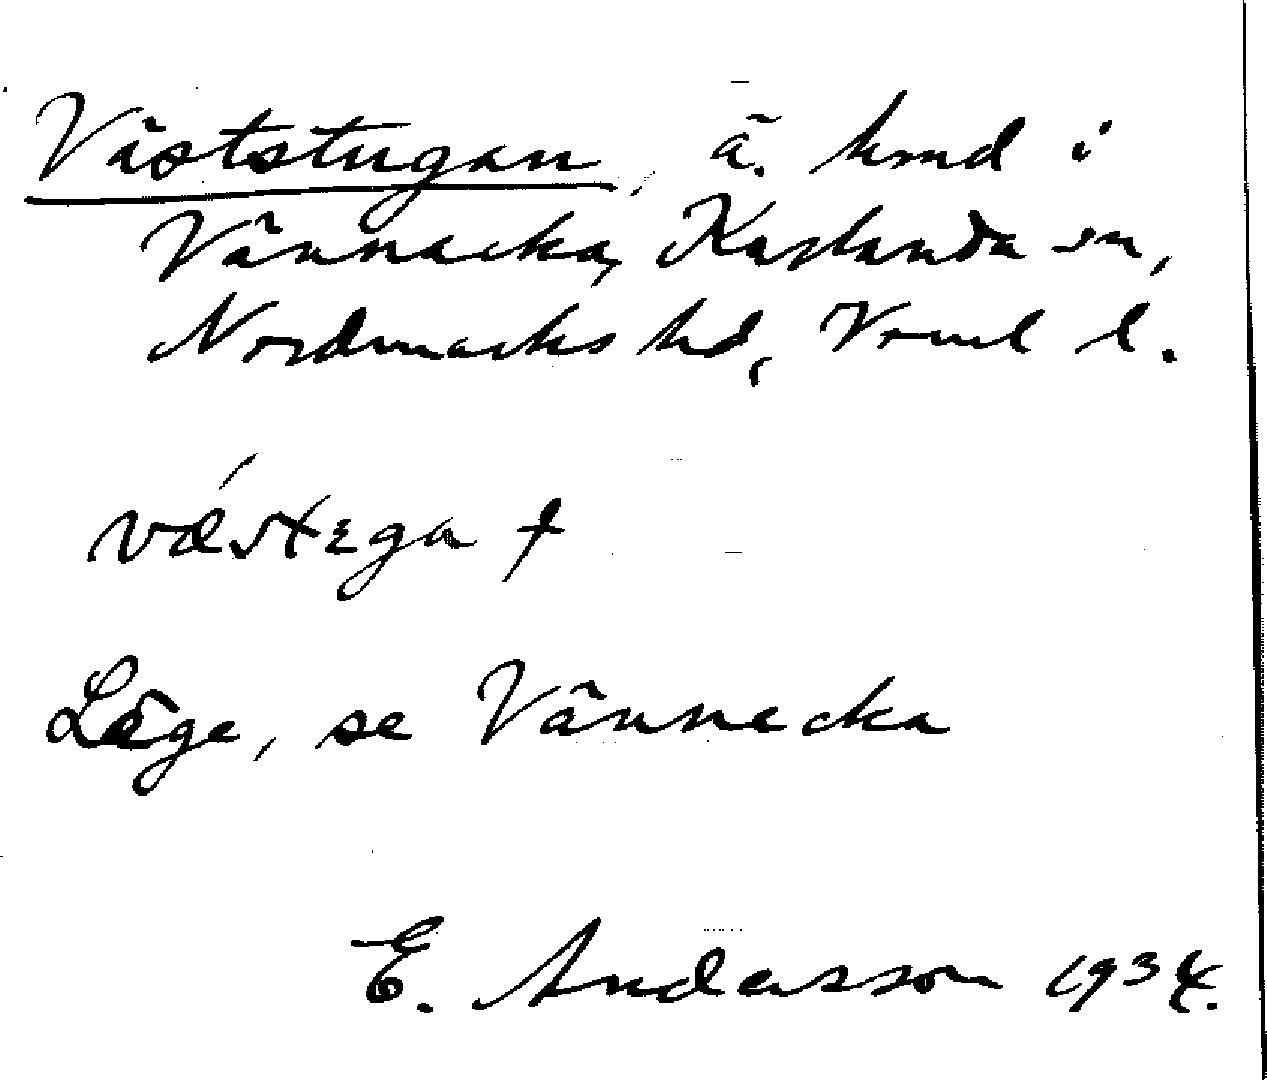 Väststugan, ä. hmd i
Vännacka, Karlanda sn,
Nordmarks hd, Vrml l.
vǽstega †
Läge, se Vännacka
E. Andersson 1934.